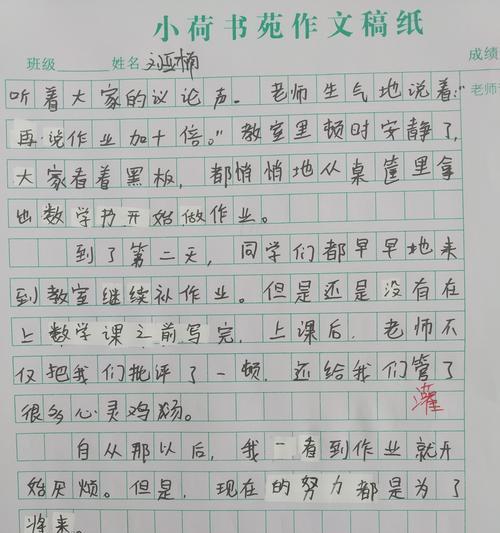 小荷书苑作文稿纸
班级 姓名 刘亚楠
成绩
老师
听着大家的议论声。老师生气地说着:“
再说作业加十倍。”教室里顿时安静了,
大家看着黑板,都悄悄地从桌筐里拿
出数学书开始做作业。
到了第二天,同学们都早早地来
到教室继续补作业。但是还是没有在
上数学课之前写完,上课后,老师不
仅把我们批评了一顿,还给我们管了
灌
很多心灵鸡汤。
自从那以后,我一看到作业就开
始厌烦。但是,现在的努力都是为了
将来。